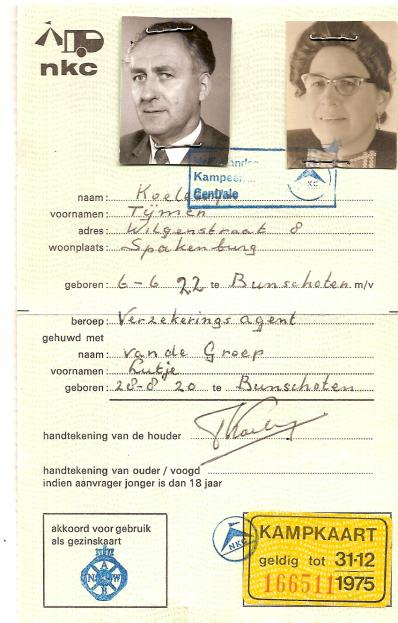 nkc
Kampeer
Centrale
NKC
naam:
voornamen: Tijmen
adres: Wilgenstraat 8
woonplaats: Spakenburg
geboren: 6-6 22 te Bunschoten m/v
beroep: Verzekerings agent
gehuwd met
naam: van de Groep
voornamen: Lutje
geboren: 28-8 20 te Bunschoten
handtekening van de houder
handtekening van ouder / voogd
indien aanvrager jonger is dan 18 jaar
akkoord voor gebruik
als gezinskaart
NKC
KAMPKAART
geldig tot 31-12
166511 1975